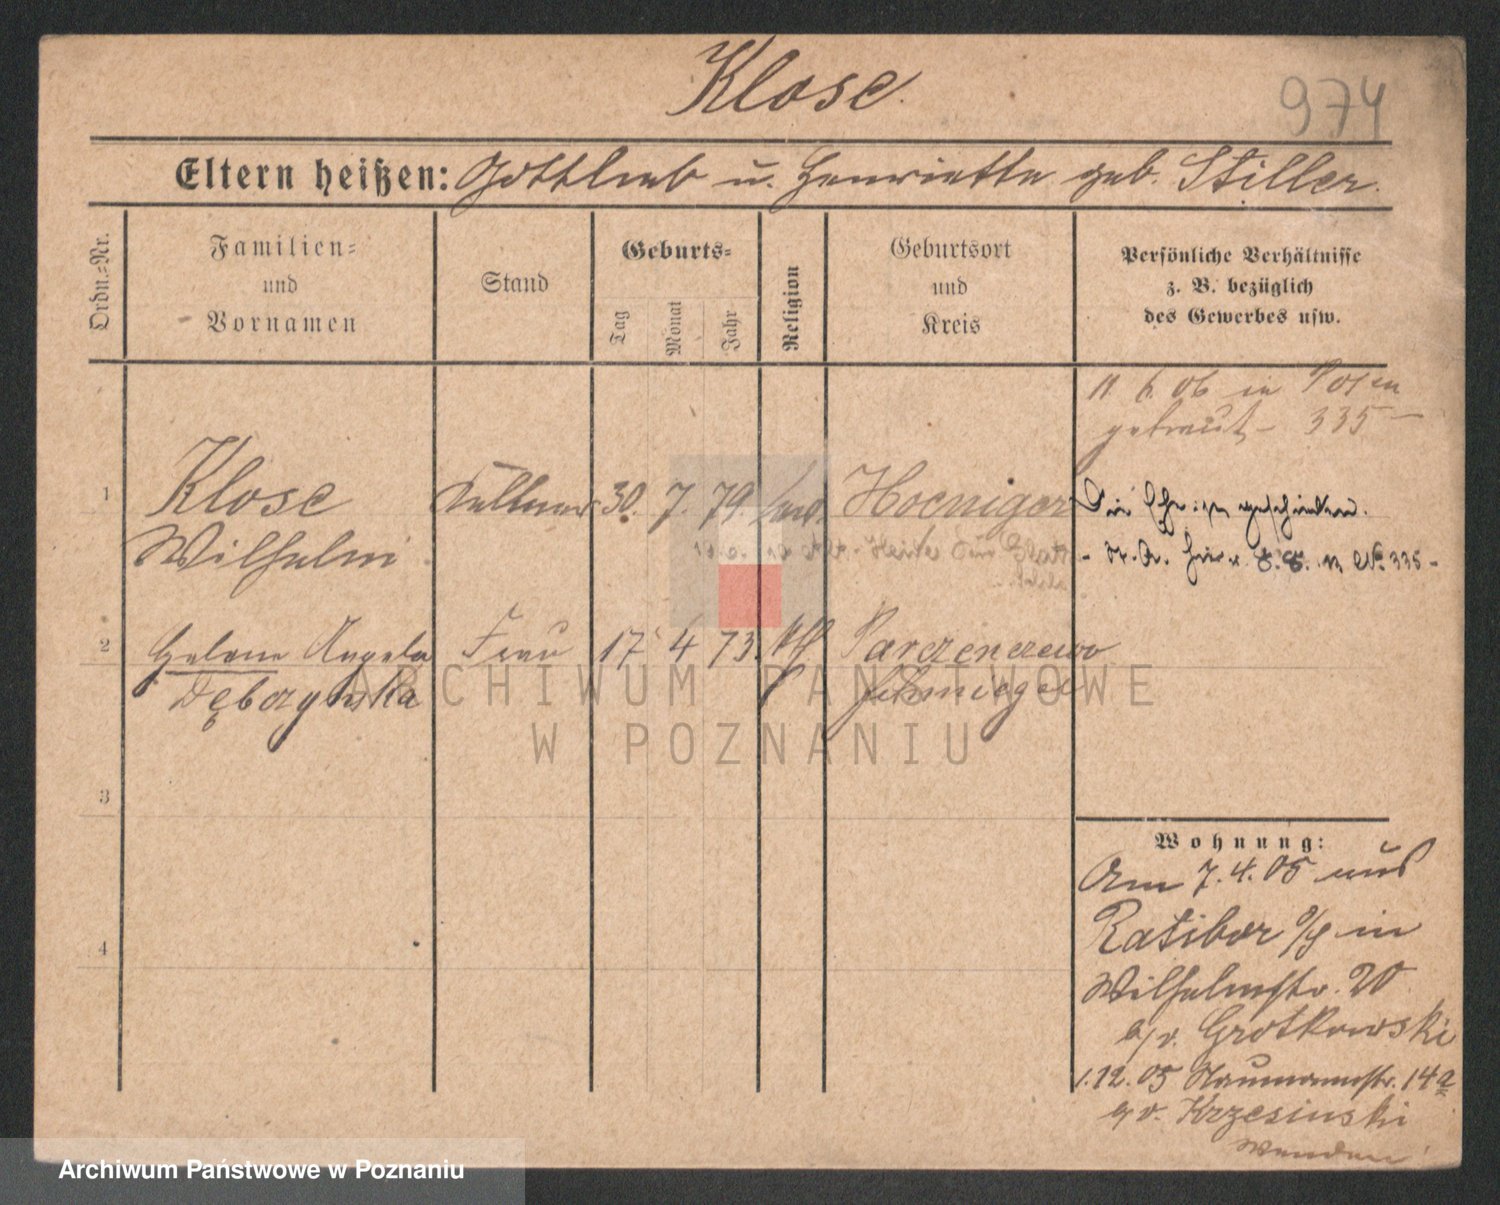 Klose.
974
Eltern heißen: Gottlieb u. Henriette geb. Stiller.
Ordn.-Nr.
Familien-
und
Vornamen
Stand
Geburts-
Tag
Monat
Jahr
Religion
Geburtsort
und
Kreis
Persönliche Verhältnisse
z. B. bezüglich
des Gewerbes usw.
11 6 06 in Posen
getraut - 335 -
1
Klose
Wilhelm
Kellner
30. 7. 79.
Hoeniger
geschieden.
No. 335 -
2
Helene Angela
Dębczynska
Frau
17 4 73.
kth
Parczenczewo
Schmiegel
3
4
Wohnung:
Am 7.4.05 aus
Ratibor o/s in
Wilhelmstr. 20
b/v. Grotkowski
1.12.05 Naumannstr. 14a
b/v. Krzesinski
wenden
ARCHIWUM PAŃSTWOWE
W POZNANIU
Archiwum Państwowe w Poznaniu